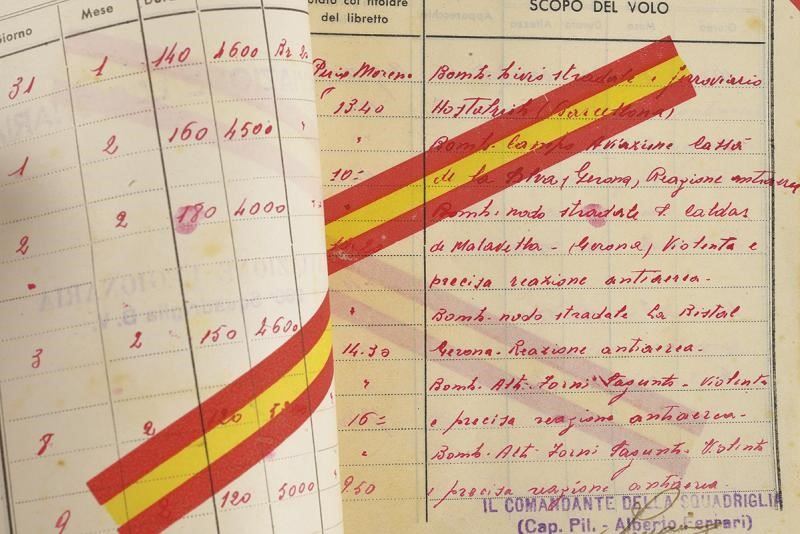 Giorno Mese
31 1 140 4600
1 2 160 4500
2 2 180 4000
3 2 150 4600
8 2 120
9 2 120 5000
col titolare
del libretto
SCOPO DEL VOLO
Moreno Bomb. bivio stradale e ferroviario
13.40 Hostalrich (Barcellona)
Bomb. Campo Aviazione Cassà
10= de la Selva, (Gerona) Reazione antiaerea
Bomb. nodo stradale S. Caldas
de Malavella - (Gerona) Violenta e
precisa reazione antiaerea.
Bomb. nodo stradale La Bisbal
14.30 Gerona. Reazione antiaerea.
Bomb. Alti Forni Sagunto - Violenta
16= e precisa reazione antiaerea.
Bomb. Alti Forni Sagunto - Violenta
9.50 e precisa reazione antiaerea
IL COMANDANTE DELLA SQUADRIGLIA
(Cap. Pil. - Alberto Ferrari)